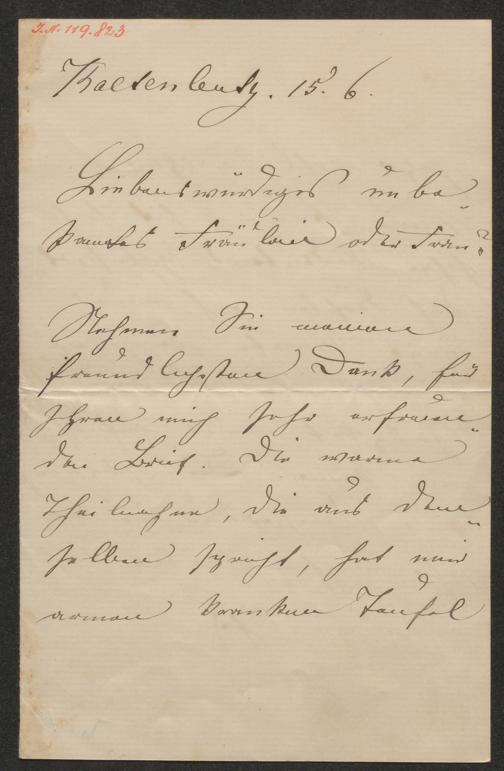 I.N. 119.823
Kaltenleutg. 15. 6.
Liebenswürdiges unbe-
kanntes Fräulein oder Frau?
Nehmen Sie meinen
freundlichsten Dank, für
Ihren mich sehr erfreuen-
den Brief. Die warme
Theilnahme, die aus dem-
selben spricht, hat mir
armen kranken Teufel